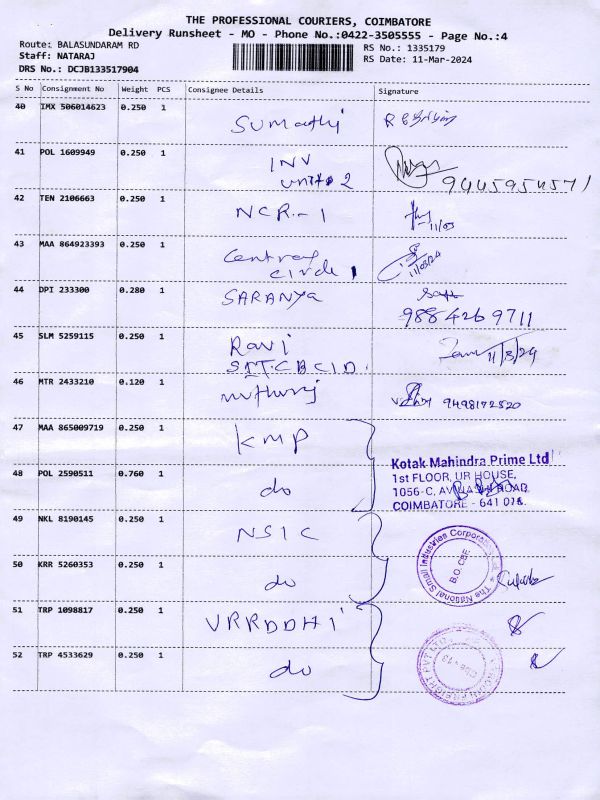 THE PROFESSIONAL COURIERS, COIMBATORE
Delivery Runsheet - MO - Phone No.:0422-3505555 - Page No.:4
Route: BALASUNDARAM RD
RS No.: 1335179
Staff: NATARAJ
RS Date: 11-Mar-2024
DRS No.: DCJB133517904
S No Consignment No Weight PCS Consignee Details Signature
40 IMX 506014623 0.250 1 Sumathi
41 POL 1609949 0.250 1 INV
units 2 9445954571
42 TEN 2106663 0.250 1 NCR-1 11/03
43 MAA 864923393 0.250 1 Central
circle 1 11/03/24
44 DPI 233300 0.280 1 SARANYA
9884269711
45 SLM 5259115 0.250 1 Ravi
SIT.CBCID. 11/3/24
46 MTR 2433210 0.120 1 muthuraj 9498172520
47 MAA 865009719 0.250 1 KMP
Kotak Mahindra Prime Ltd
1st FLOOR, UR HOUSE,
48 POL 2590511 0.760 1 do 1056-C, AVINASHI ROAD,
COIMBATORE - 641 018.
49 NKL 8190145 0.250 1 NSIC
The National Small Industries Corporation Ltd.
B.O. CBE
50 KRR 5260353 0.250 1 do
51 TRP 1098817 0.250 1 VRRDDHI
52 TRP 4533629 0.250 1 do